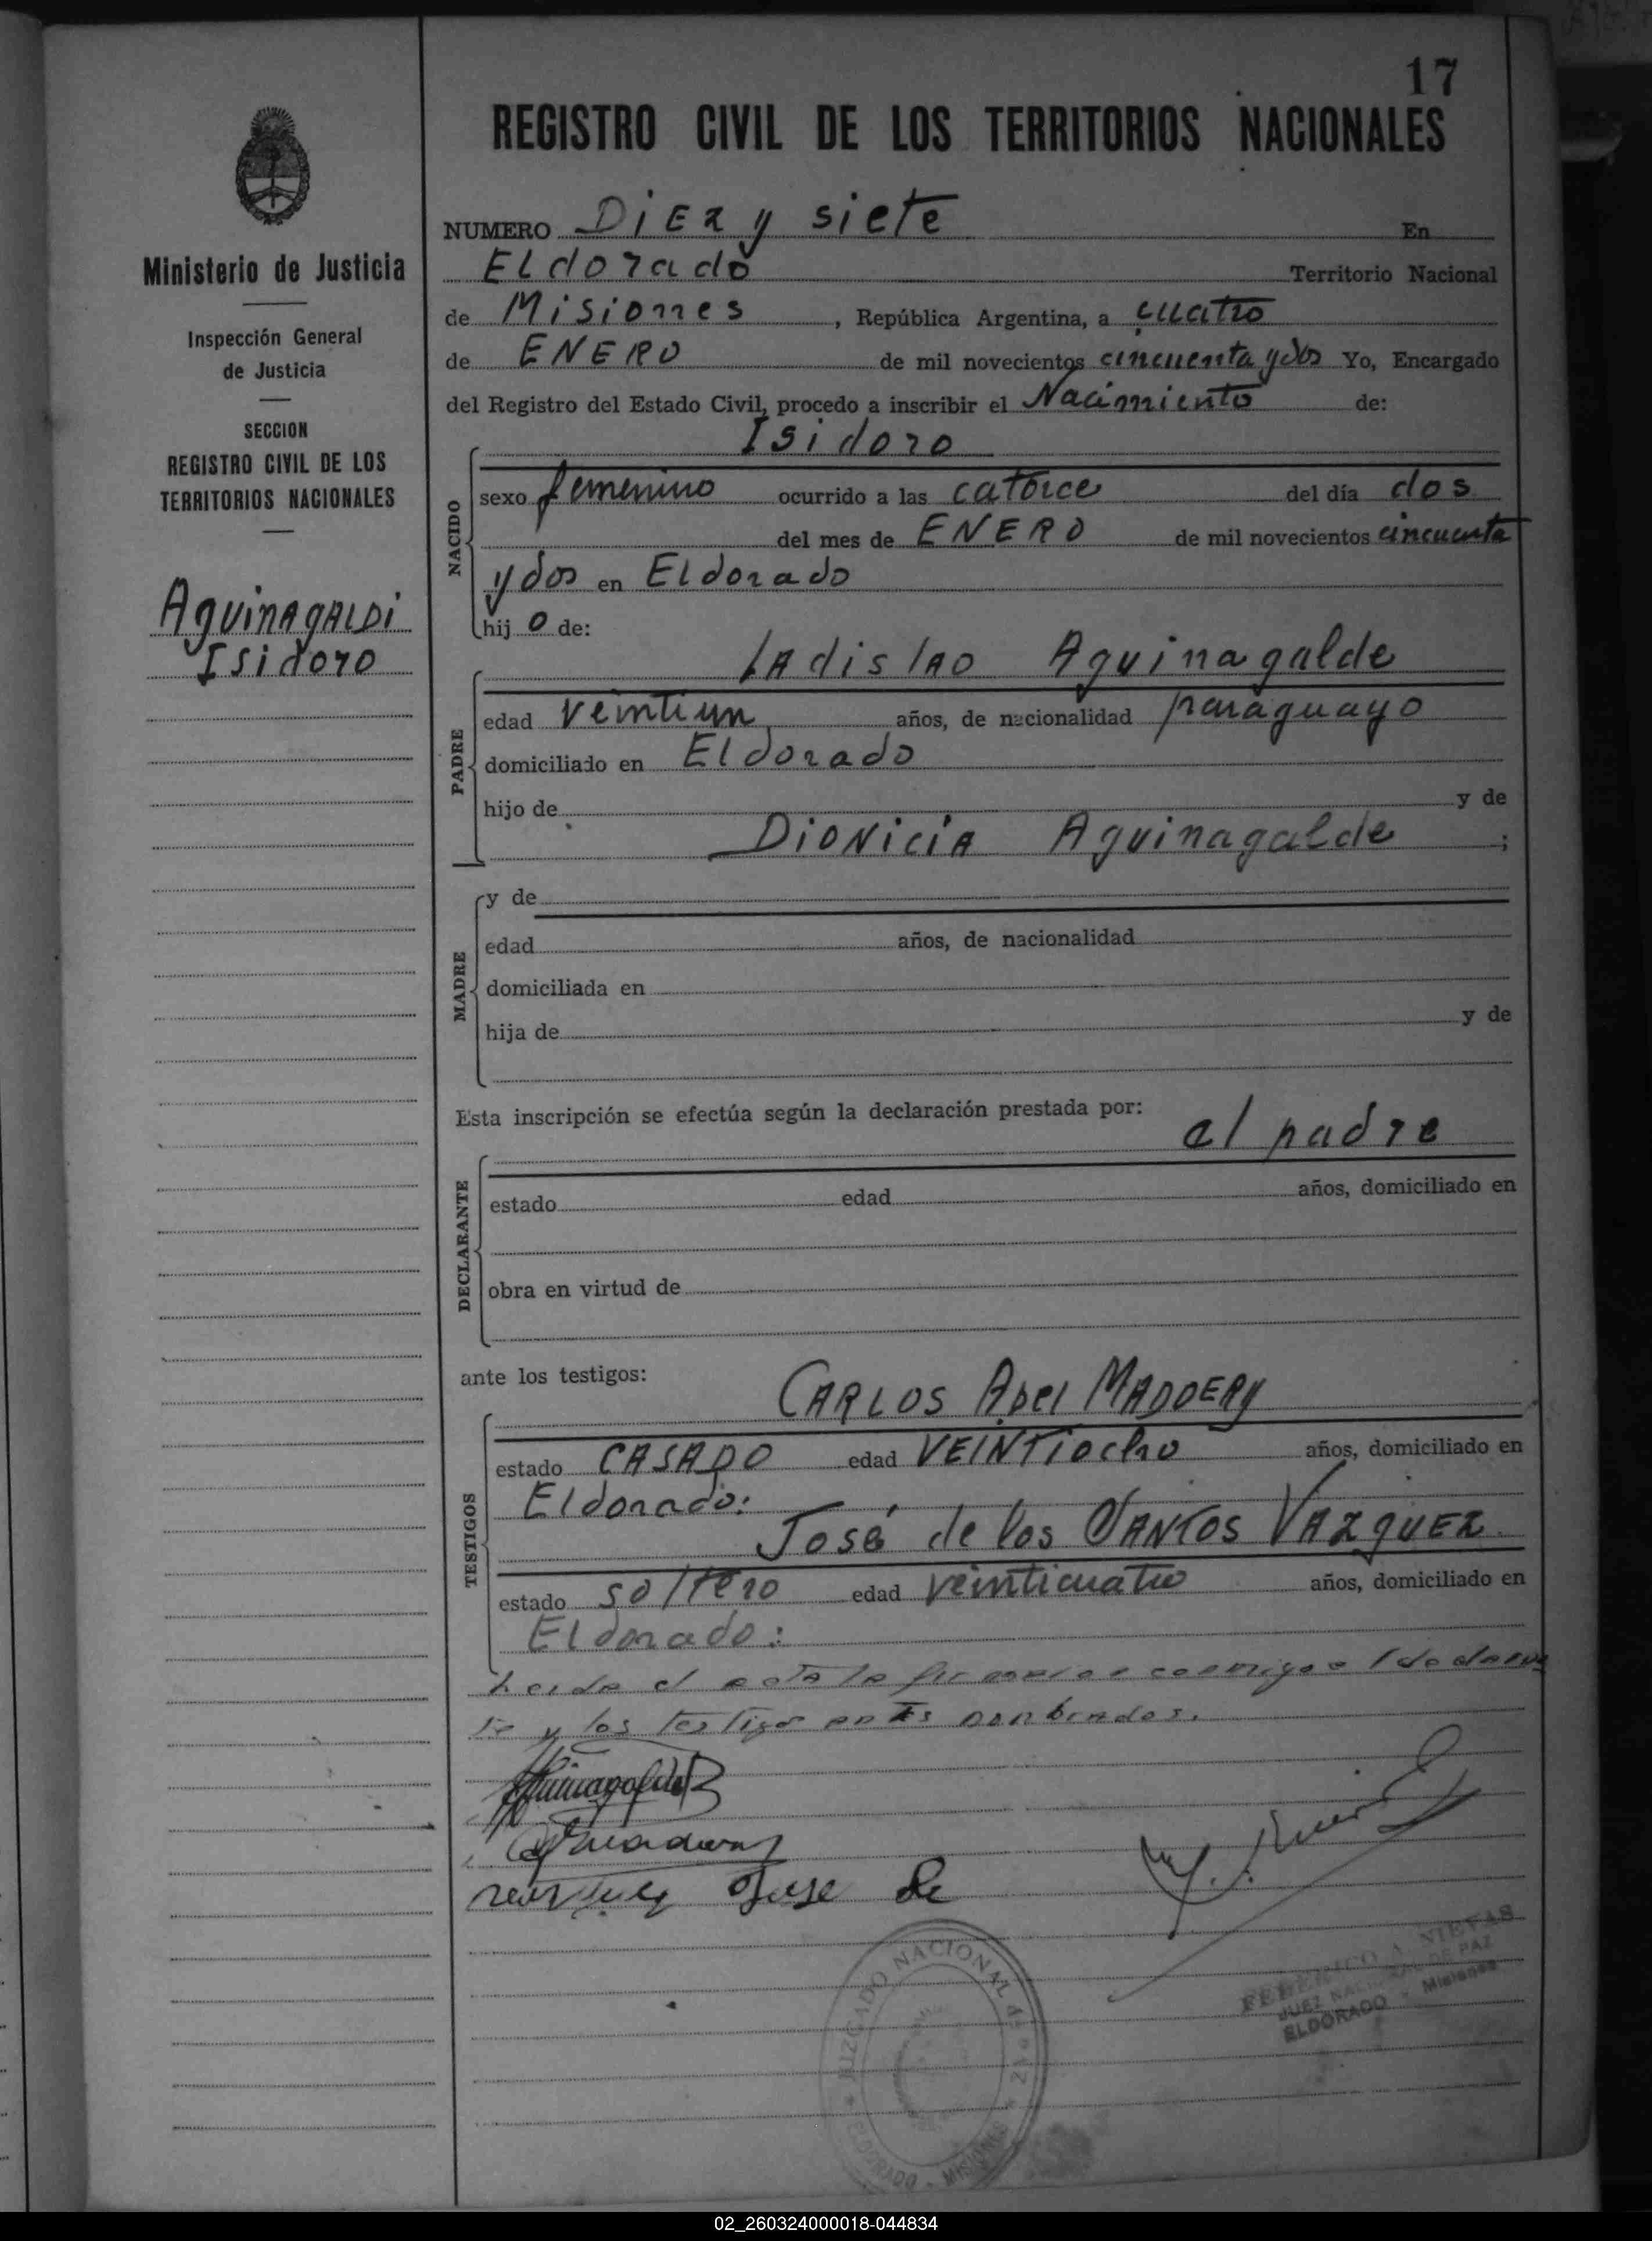 17
REGISTRO CIVIL DE LOS TERRITORIOS NACIONALES
Ministerio de Justicia
Inspección General
de Justicia
SECCION
REGISTRO CIVIL DE LOS
TERRITORIOS NACIONALES
AguinAgALDi
Isidoro
NUMERO Diez y siete En
Eldorado Territorio Nacional
de Misiones, República Argentina, a cuatro
de ENERO de mil novecientos cincuenta y dos Yo, Encargado
del Registro del Estado Civil, procedo a inscribir el Nacimiento de:
Isidoro
NACIDO
sexo femenino ocurrido a las catorce del día dos
del mes de ENERO de mil novecientos cincuenta
y dos en Eldorado
hij o de:
LAdislAo Aguinagalde
PADRE
edad veintiun años, de nacionalidad paraguayo
domiciliado en Eldorado
hijo de y de
DioNiciA Aguinagalde ;
MADRE
y de
edad años, de nacionalidad
domiciliada en
hija de y de
Esta inscripción se efectúa según la declaración prestada por:
el padre
DECLARANTE
estado edad años, domiciliado en
obra en virtud de
ante los testigos:
CARLOS Abel MADDERY
TESTIGOS
estado CASADO edad VEINTiocho años, domiciliado en
Eldorado:
José de los SANTOS VAZQUEZ
estado soltero edad veinticuatro años, domiciliado en
Eldorado:
Leida el acta la conmigo
y los testigos antes nombrados.
Jose
JUZGADO NACIONAL DE PAZ
ELDORADO - MISIONES
FEDERICO A. NIEVAS
JUEZ NACIONAL DE PAZ
ELDORADO - Misiones
02_260324000018-044834